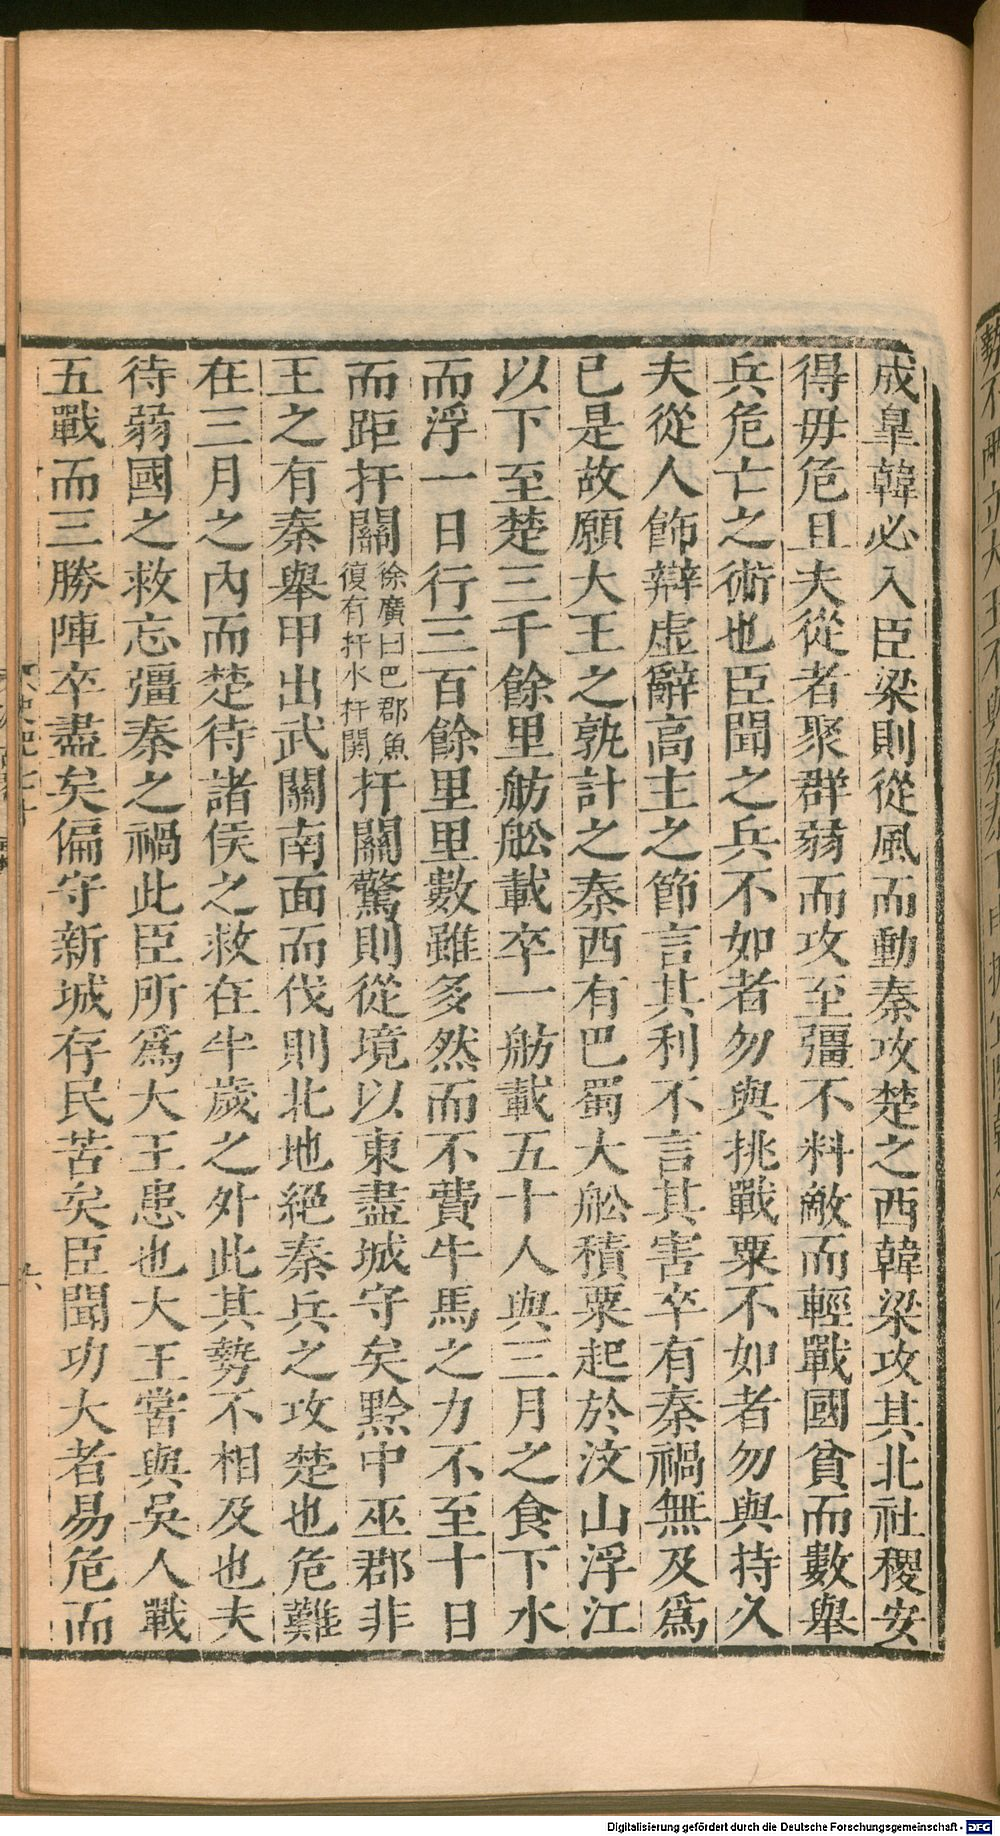 成臯韓必入臣梁則從風而動秦攻楚之西韓梁攻其北社稷安
得毋危且夫從者聚群弱而攻至彊不料敵而輕戰國貧而數舉
兵危亡之術也臣聞之兵不如者勿與挑戰粟不如者勿與持久
夫從人飾辯虛辭高主之節言其利不言其害卒有秦禍無及爲
已是故願大王之孰計之秦西有巴蜀大舩積粟起於汶山浮江
以下至楚三千餘里舫舩載卒一舫載五十人與三月之食下水
而浮一日行三百餘里里數雖多然而不費牛馬之力不至十日
而距扞關徐廣曰巴郡魚復有扞水扞關扞關驚則從境以東盡城守矣黔中巫郡非
王之有秦舉甲出武關南面而伐則北地絕秦兵之攻楚也危難
在三月之內而楚待諸侯之救在半歲之外此其勢不相及也夫
待弱國之救忘彊秦之禍此臣所爲大王患也大王嘗與吳人戰
五戰而三勝陣卒盡矣偏守新城存民苦矣臣聞功大者易危而
Digitalisierung gefördert durch die Deutsche Forschungsgemeinschaft - DFG